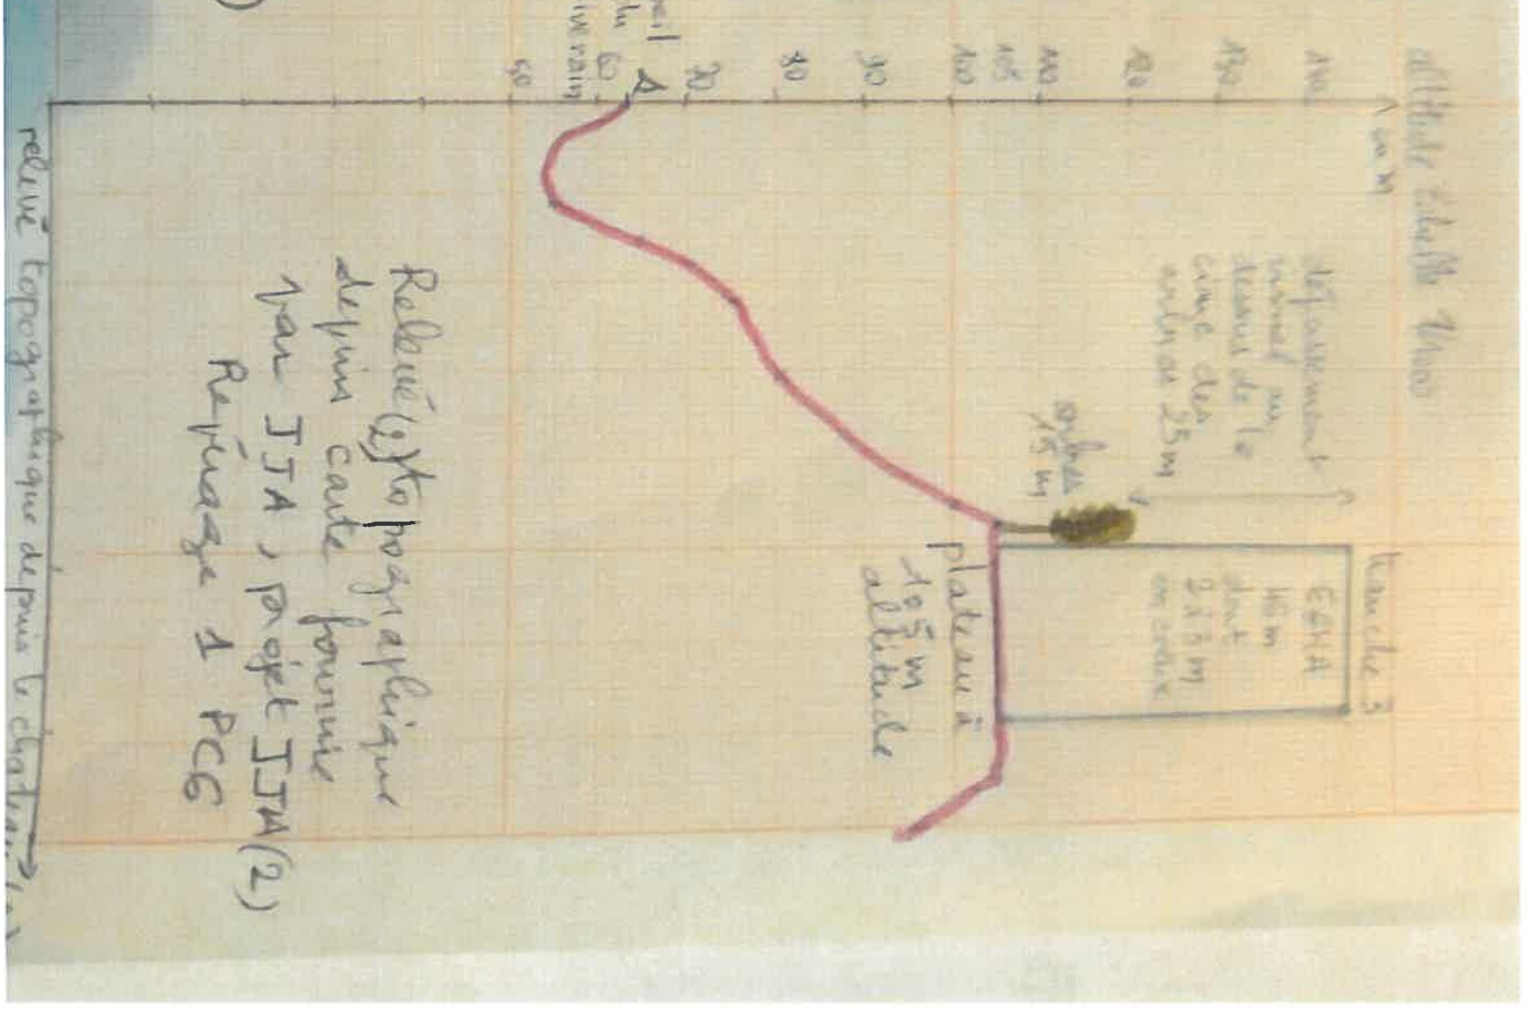 altitude échelle
en m
140
130
120
110
105
100
90
80
70
60
50
tranche 3
dépassement
visuel au
dessus de la
cime des
arbres 25m
arbres
15 m
46m
dont
en
plateau à
105m
altitude
Relevé (2) topographique
depuis carte fournie
par JJA, projet JJA(2)
Repérage 1 PC6
relevé topographique depuis le